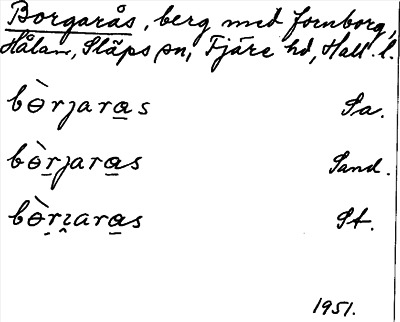 Borgarås, berg med fornborg,
Hålan, Släps sn, Fjäre hd, Hall. l.
bɵ̀rjara̲s Sa.
bɵ̀r̲jara̲s Sand.
bɵ̀ṛı̭ara̲s St.
1951.